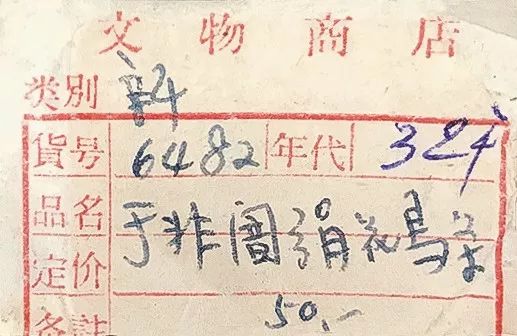 文物商店
类別
貨号 6482 年代
品名 于非闇绢花鸟
定价
50.-
备註